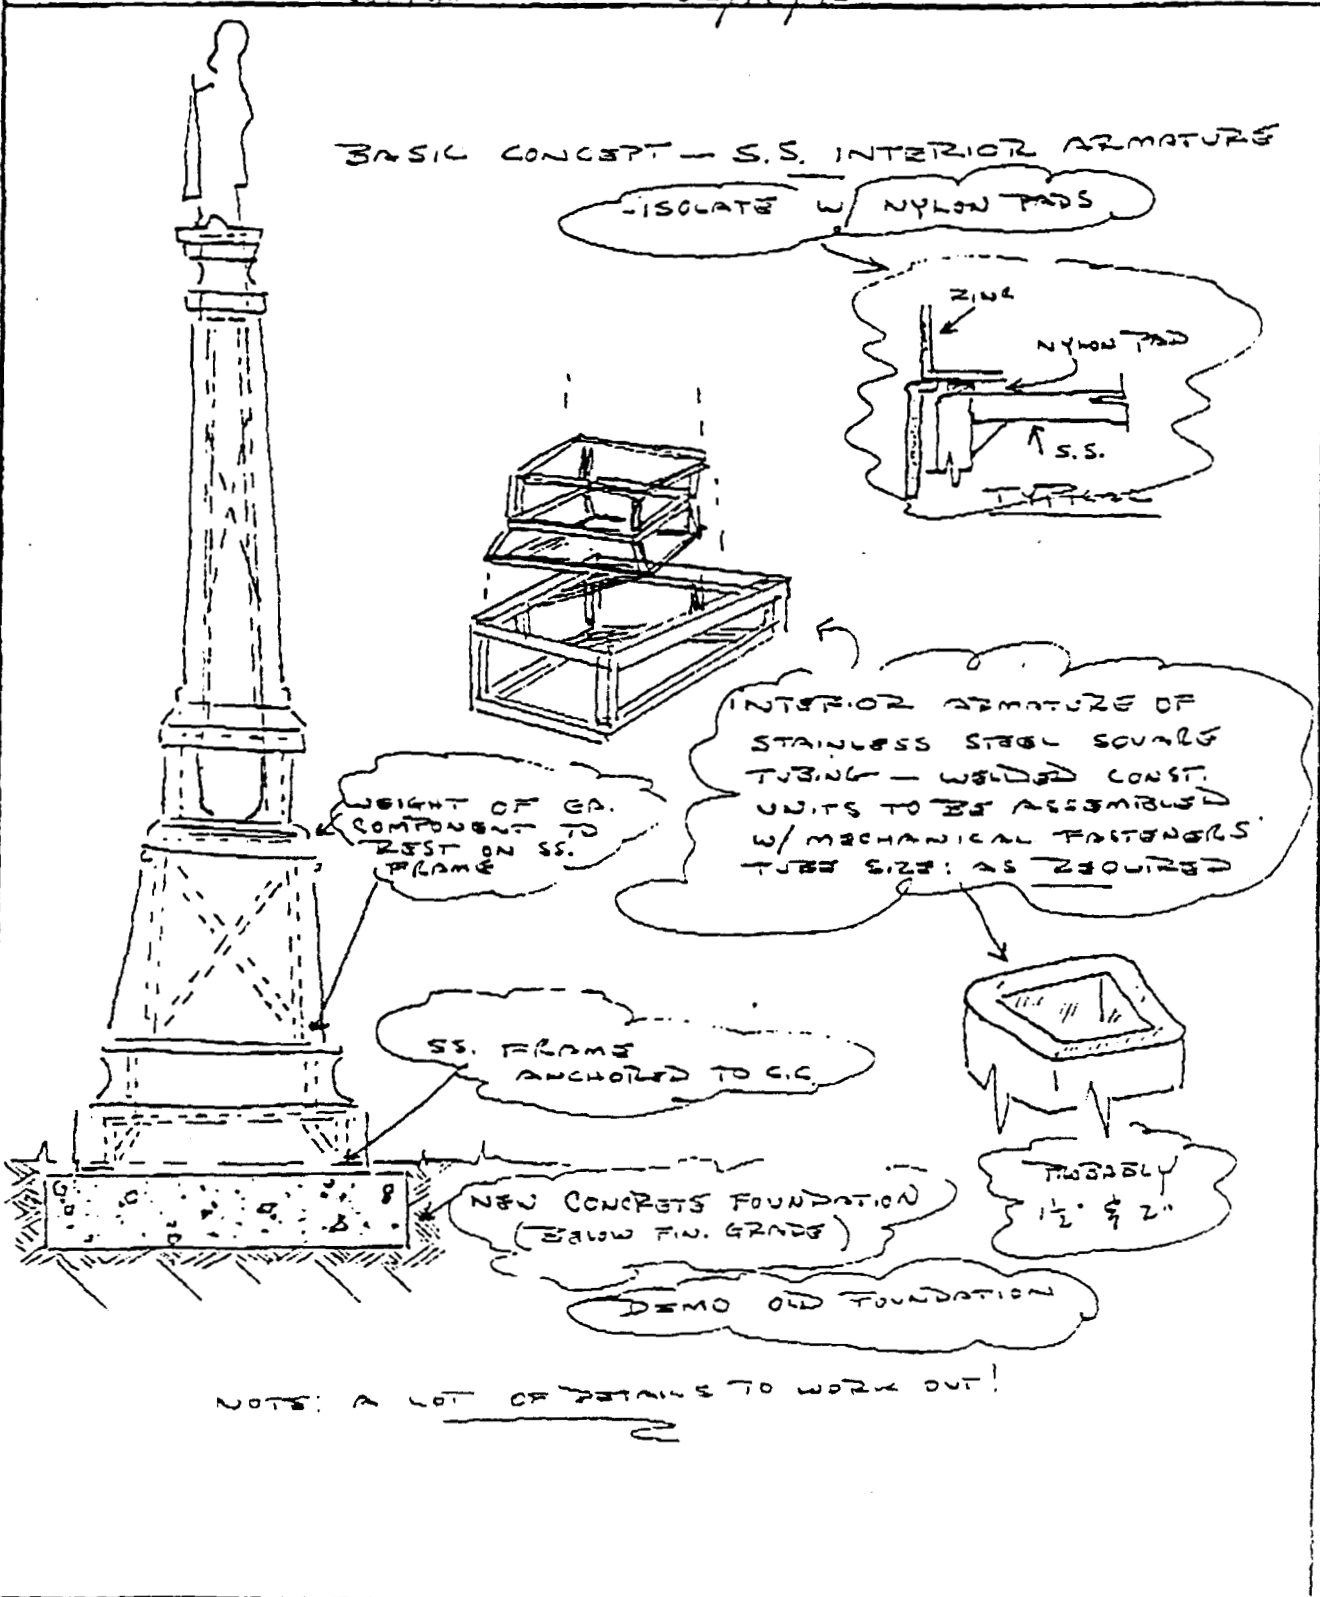 BASIC CONCEPT — S.S. INTERIOR ARMATURE
-ISOLATE W/ NYLON PADS
ZINC
NYLON PAD
S.S.
TYPICAL
INTERIOR ARMATURE OF
STAINLESS STEEL SQUARE
TUBING — WELDED CONST.
UNITS TO BE ASSEMBLED
W/ MECHANICAL FASTENERS
TUBE SIZE: AS REQUIRED
WEIGHT OF EA.
COMPONENT TO
REST ON SS.
FRAME
SS. FRAME
ANCHORED TO C.C.
PROBABLY
1½" & 2"
NEW CONCRETE FOUNDATION
(BELOW FIN. GRADE)
DEMO OLD FOUNDATION
NOTE: A LOT OF DETAILS TO WORK OUT!